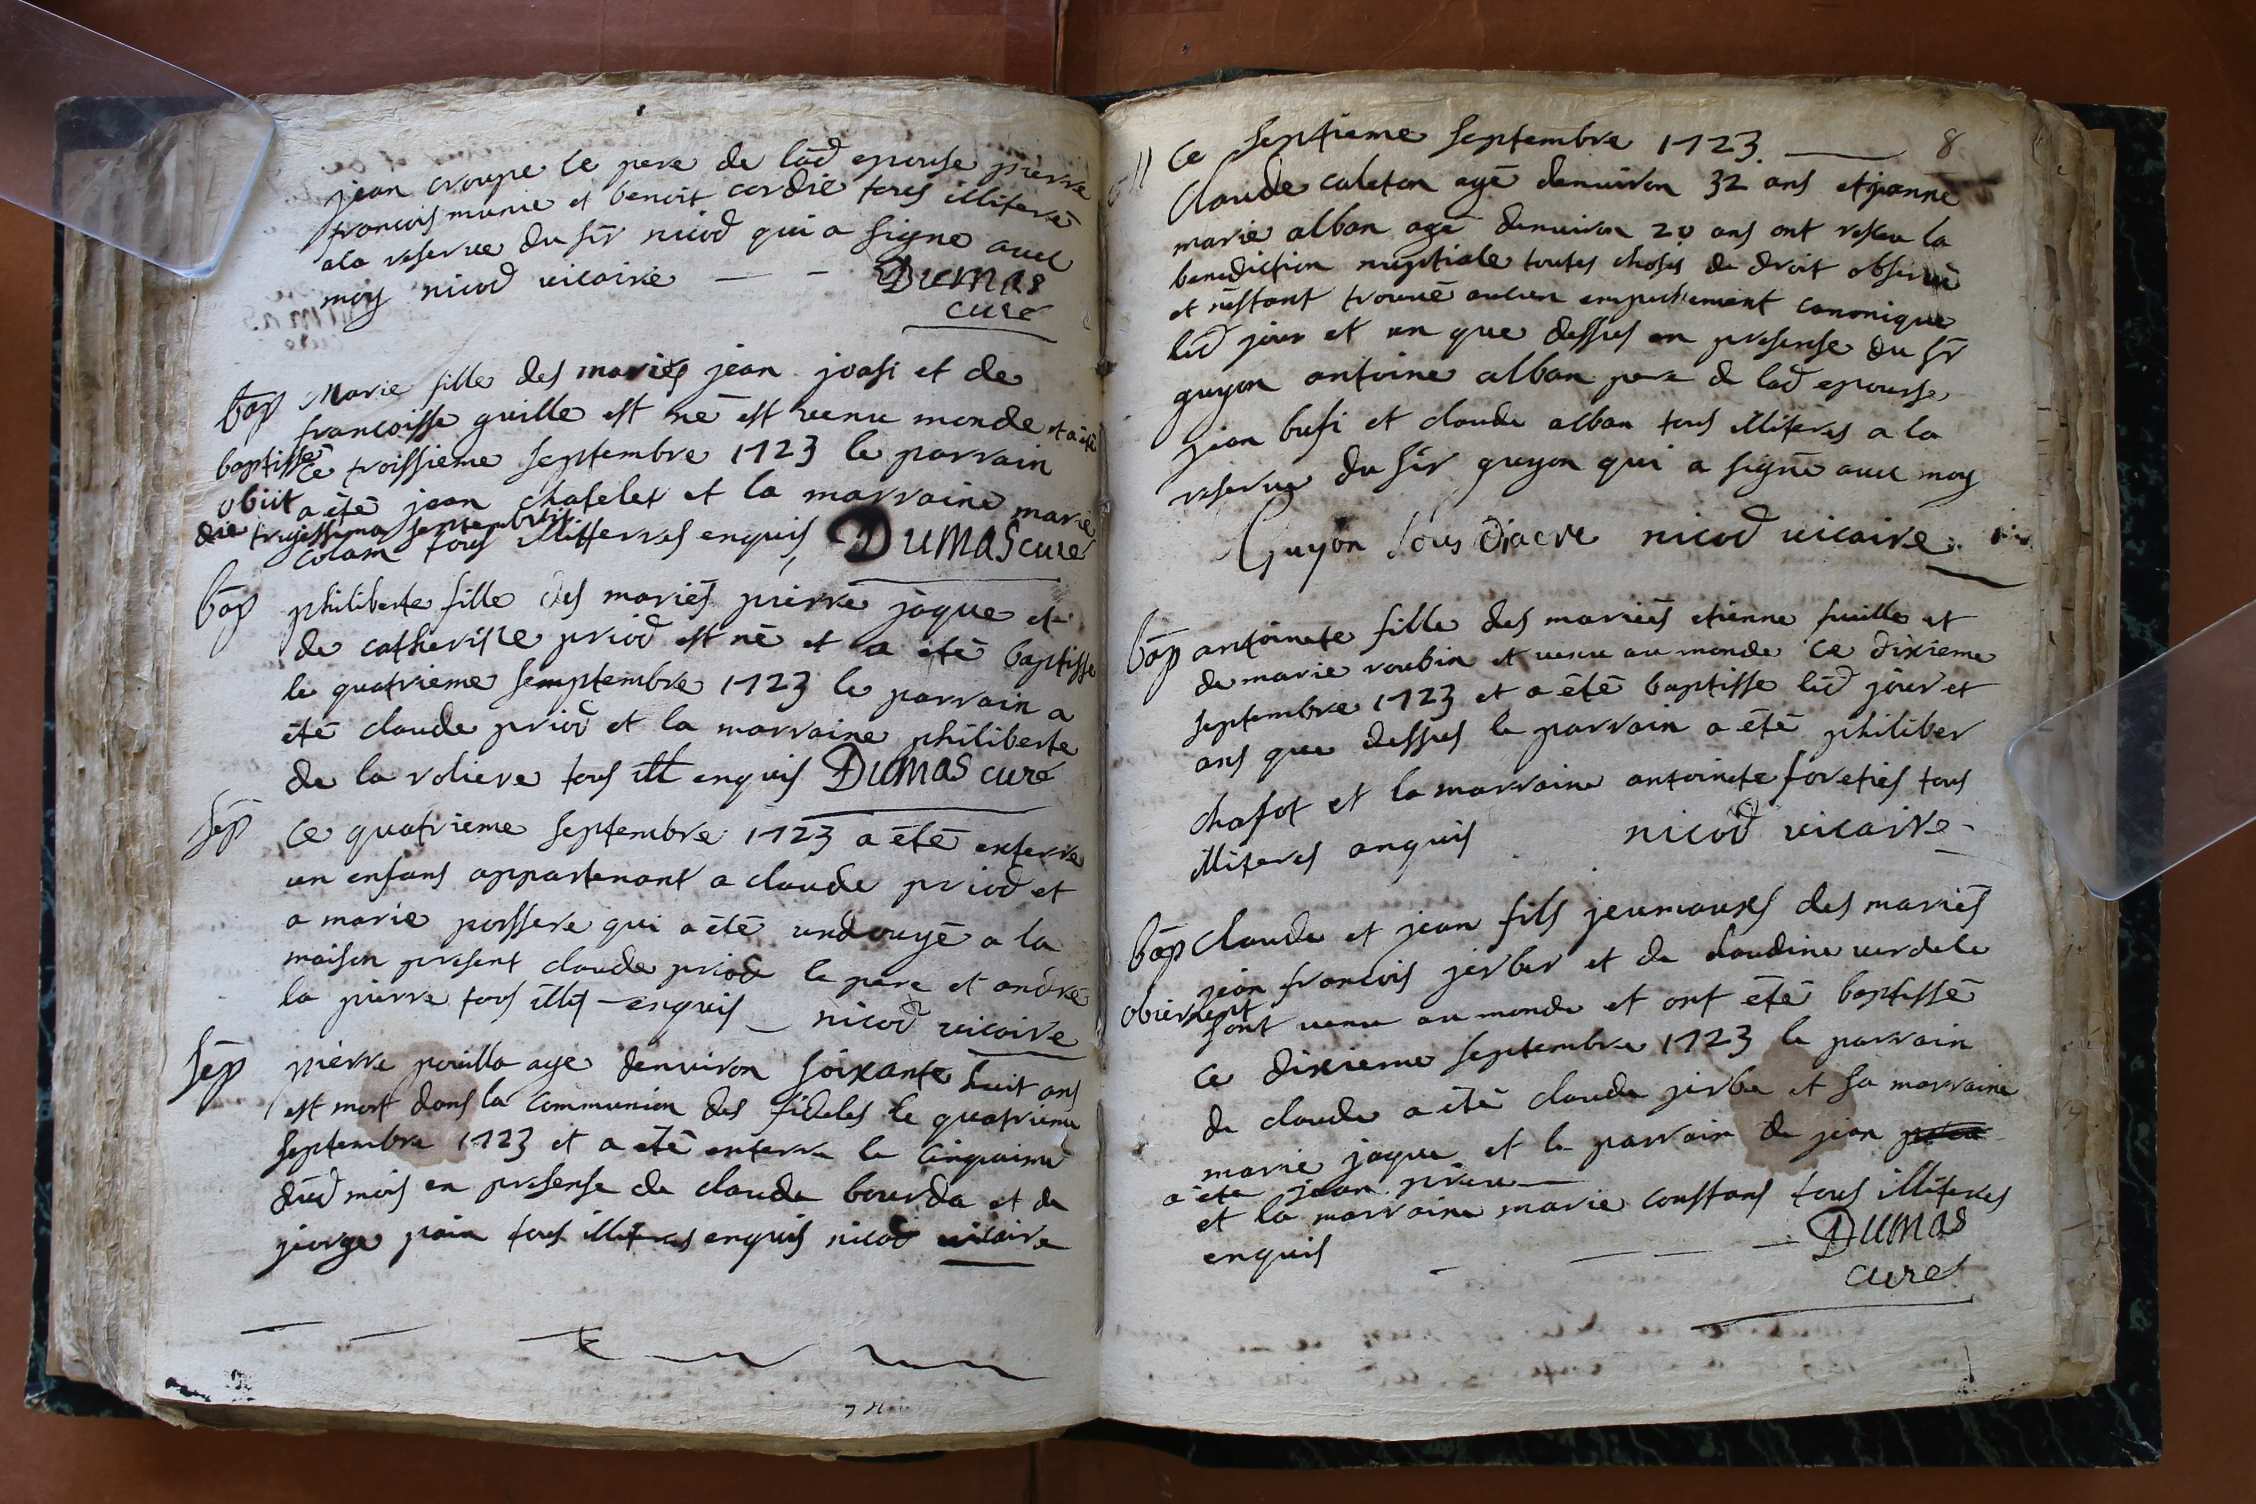 jean croupe le pere de lad epouse pierre
francois munie et benoit cordie tous illiteré
a la reserve du sir nicod qui a signe avec
moy nicod vicaire
Dumas
curé
bap Marie fille des mariés jean joasi et de
francoisse guille est né est venu monde et a été
baptissé ce troissieme septembre 1723 le parrain
obiit a été jean chatelet et la marraine marie
die trigessima septembris
colam tous illitterres enquis Dumas curé
bap philiberte fille des mariés pierre jaque et
de catherisse priod est né et a eté baptisse
le quatrieme semptembre 1723 le parrain a
été claude priod et la marraine philiberte
de la roliere tous ill enquis Dumas curé
sep Ce quatrieme septembre 1723 a été enterre
un enfans appartenant a claude priod et
a marie possere qui a été undouyé a la
maison present claude priod le pere et andré
la pierre tous illes enquis nicod vicaire
sep pierre pouilla age denviron soixante huit ans
est mort dans la communion des fideles le quatrieme
septembre 1723 et a eté enterre le cinquaime
dud mois en presense de claude bourda et de
jiorge pain tous illiteres enquis nicod vicaire
8
Ce septieme septembre 1723.
Claude caleton agé denuiron 32 ans et jeanne
marie alban age denuiron 20 ans ont reseu la
benediction nuptiale toutes choses de droit observé
et nestant trouvé aucun empechement canonique
led jour et an que dessus en presense du sir
guyon antoine alban pere de lad epousse
jean busi et claude alban tous illiteres a la
reserve du sir guyon qui a signé avec moy
Guyon sous diacre nicod vicaire
bap antoinete fille des mariés etienne fuille et
de marie roubin et venu au monde ce dixieme
septembre 1723 et a été baptisse led jour et
ans que dessus le parrain a été philiber
chafot et la marraine antoinete foreties tous
illiteres anquis nicod vicaire
bap Claude et jean fils jeumouxs des mariés
jean francois jerber et de claudine verdele
obierunt
sont venu au monde et ont été baptissé
ce dixieme septembre 1723 le parrain
de claude a été claude jerbe et sa marraine
marie jaque et le parrain de jean
a été jean prieu
et la marraine marie constans tous illiteres
enquis
Dumas
curé